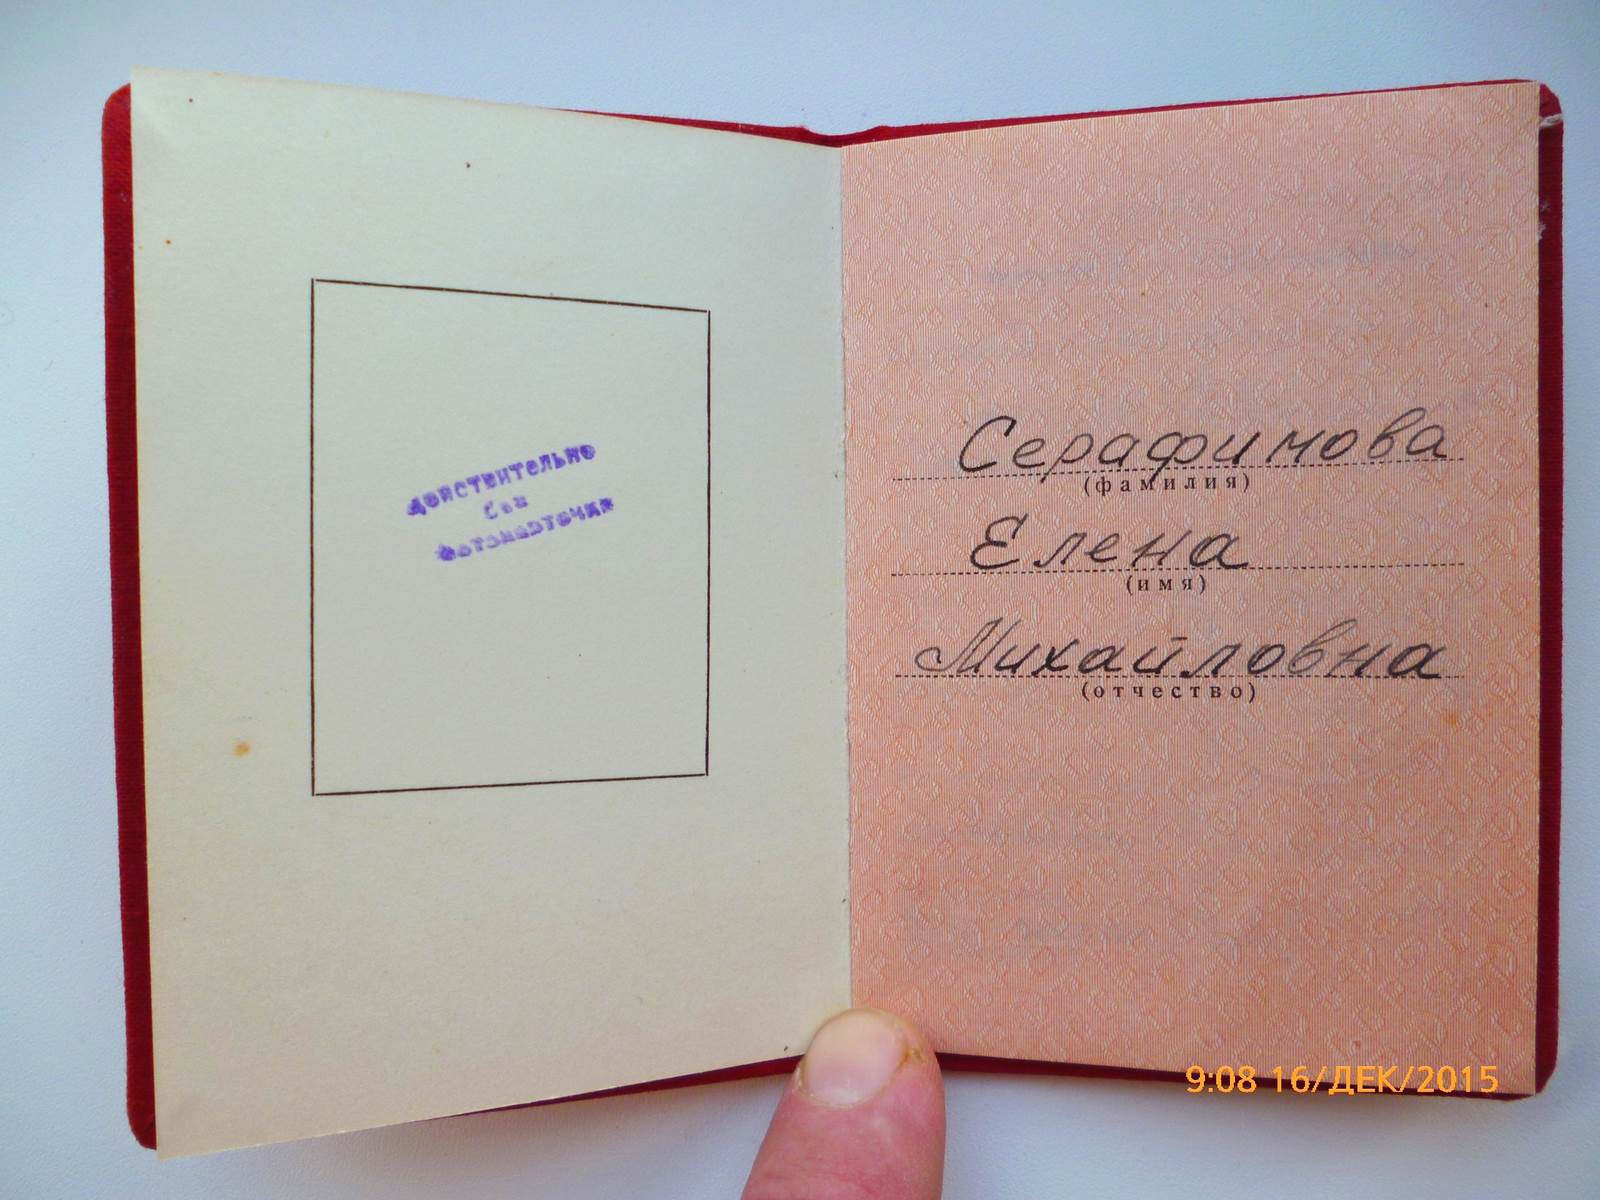 действительно
без
фотокарточки
Серафимова
(фамилия)
Елена
(имя)
Михайловна
(отчество)
9:08 16/ДЕК/2015